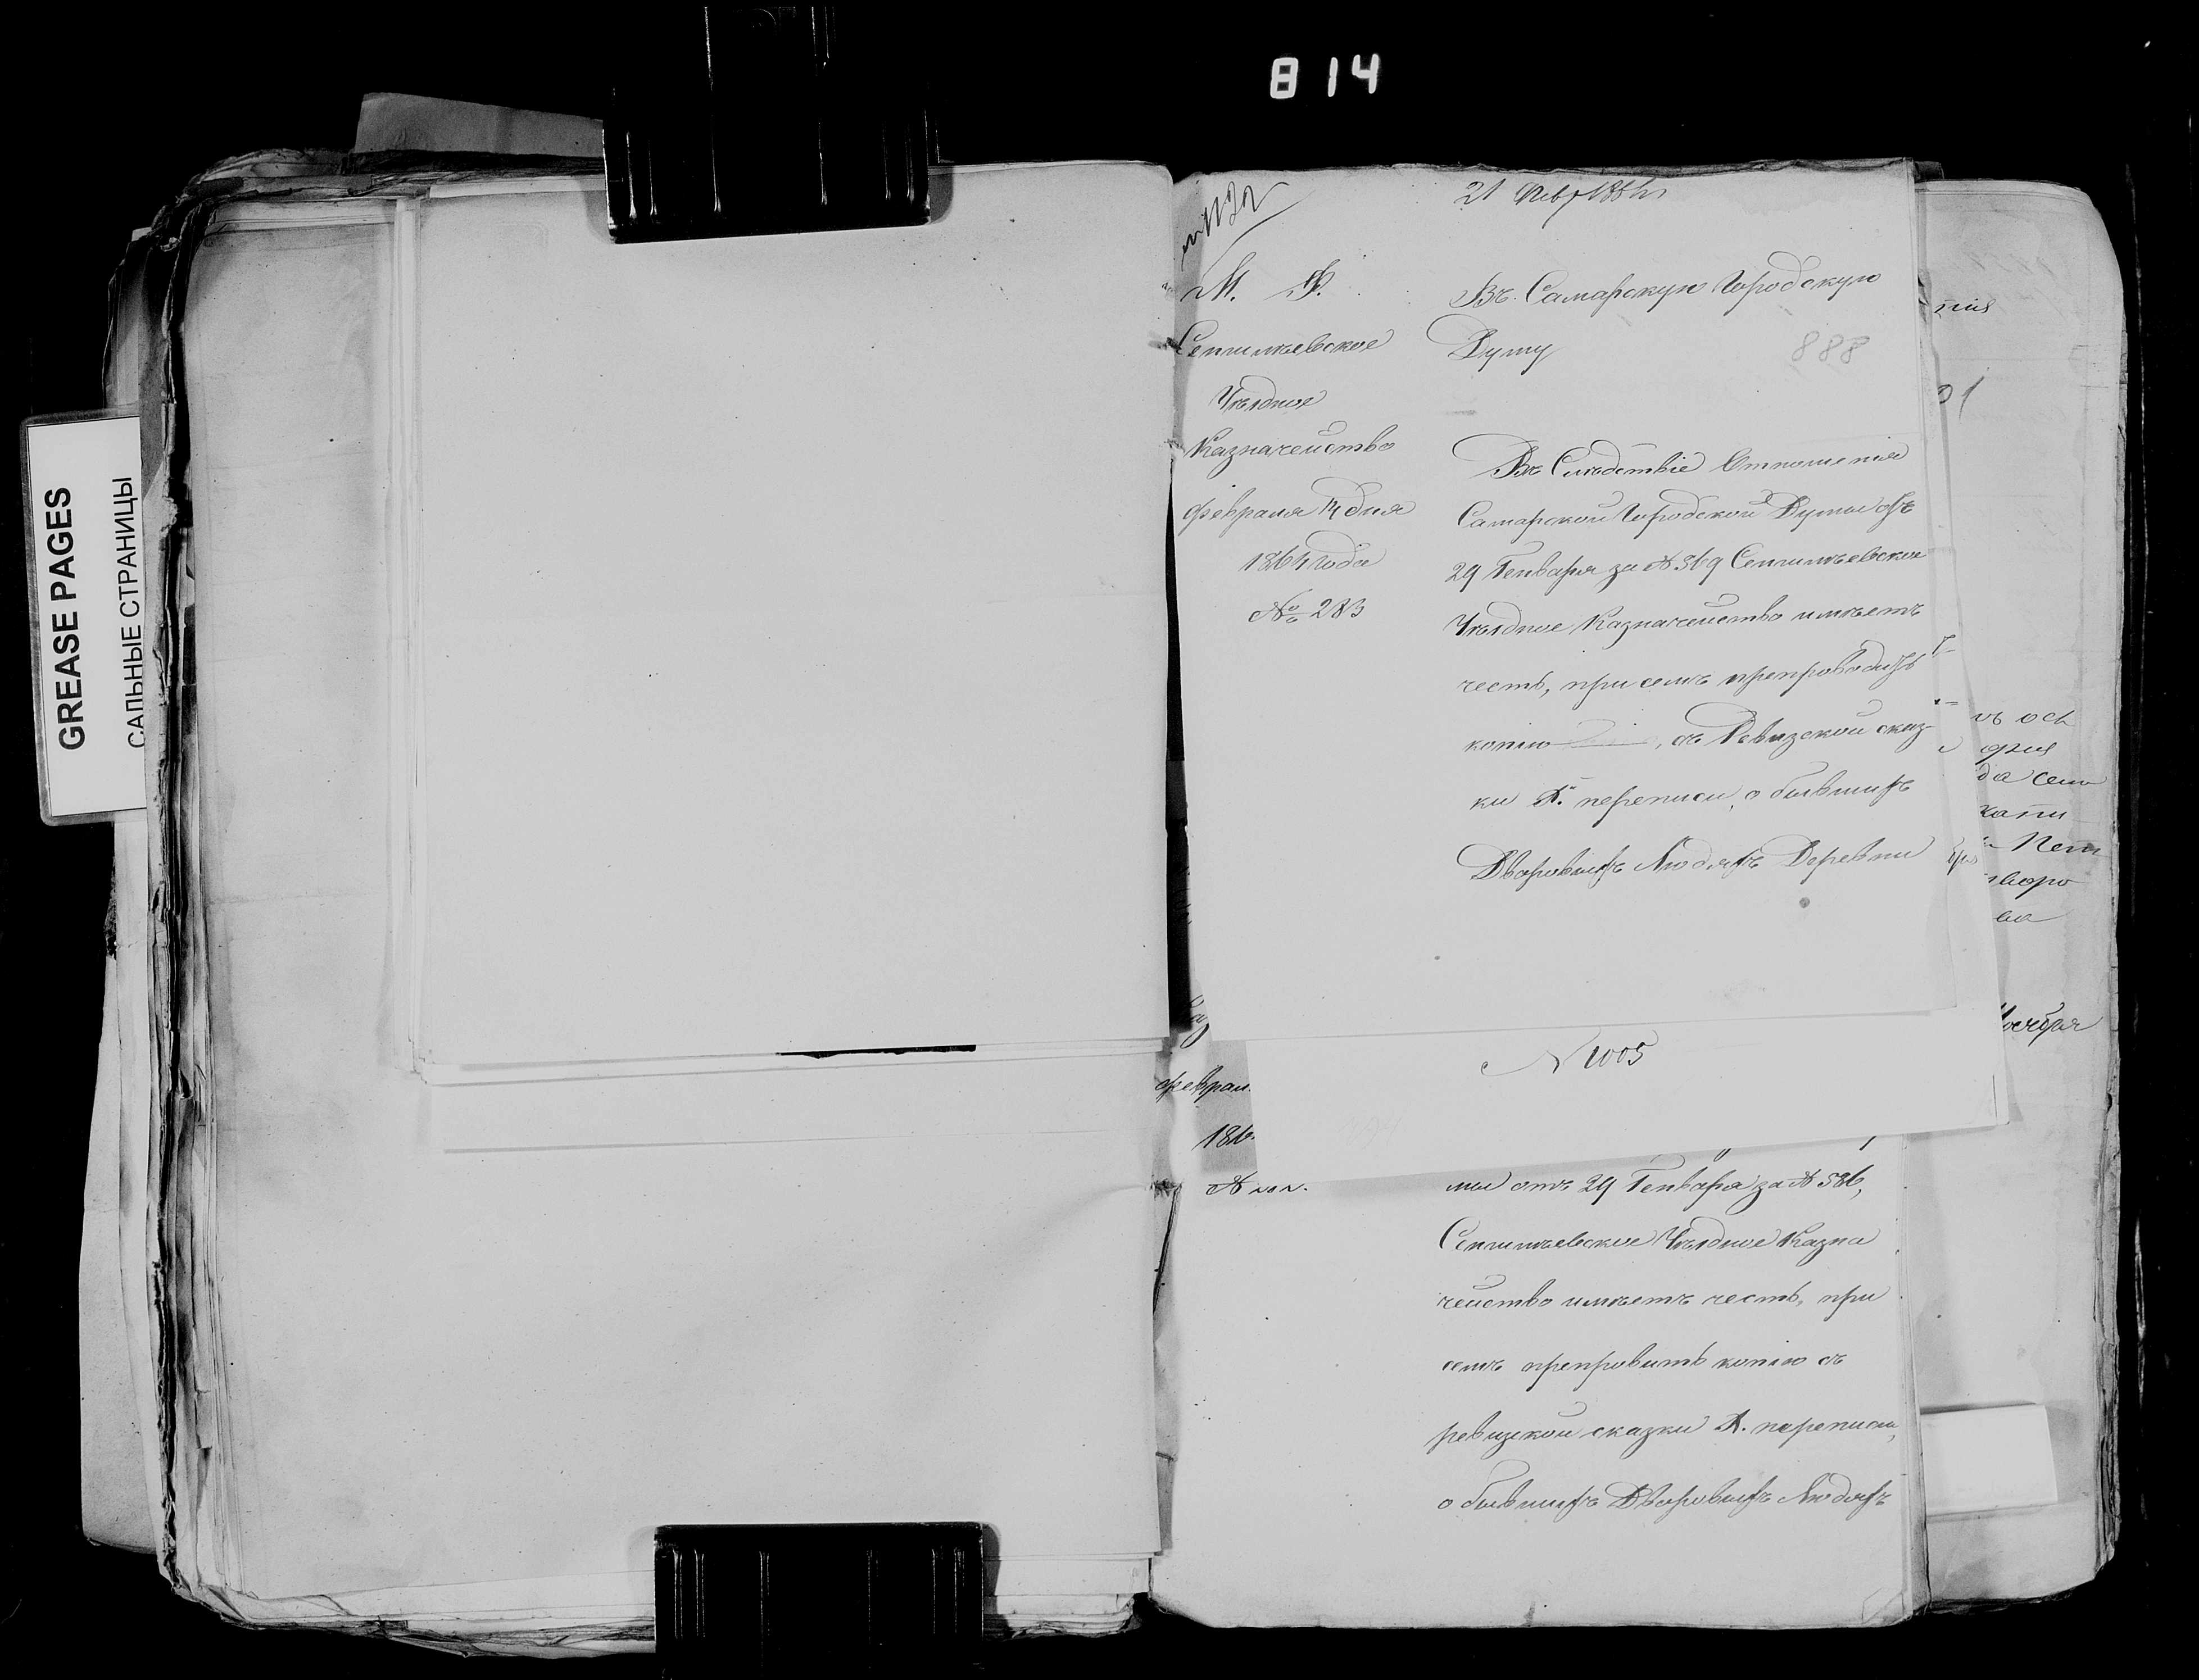 814
GREASE PAGES
САЛЬНЫЕ СТРАНИЦЫ
21 Февр 1864
М. Ф.
Сенгилѣевское
Уѣздное
Казначейство
февраля 14 дня
1864 года
№ 283
Въ Самарскую Городскую
Думу
888
Въ Слѣдствіе Отношенія
Самарской Городской Думы отъ
29 Генваря за № 569 Сенгилѣевское
Уѣздное Казначейство имѣетъ
честь, при семъ препроводить
копію, съ Ревизской сказ-
ки X. переписи, о бывшихъ
Дворовыхъ Людяхъ Деревни
N 1005
феврал
186
№
мы отъ 29 Генваря за № 586,
Сенгилѣевское Уѣздное Казна
чейство имѣетъ честь, при
семъ препровить копію съ
ревизской сказки X. переписи,
о бывшихъ Дворовыхъ Людяхъ
нія
01
въ ос
да сем
Пет